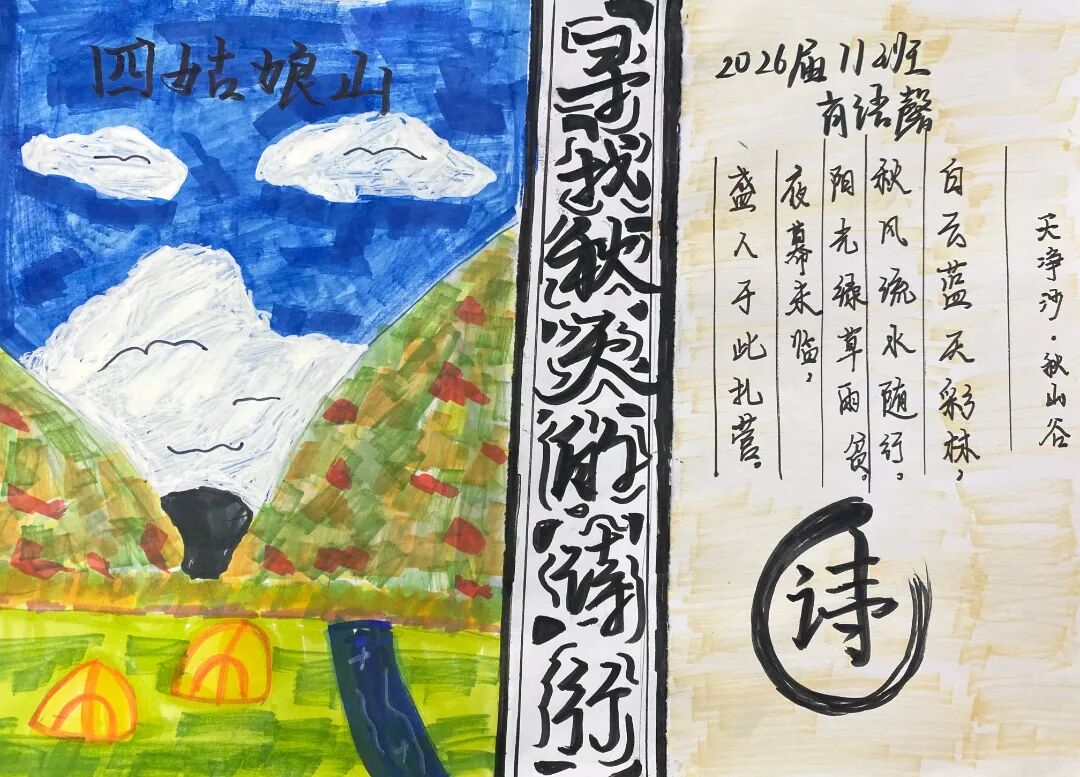 四姑娘山
寻找秋天的诗行
2026届11班
肖语馨
天净沙·秋山谷
白云蓝天彩林，
秋风流水随行。
阳光绿草雨贫。
夜幕未临，
盛人于此扎营。
诗